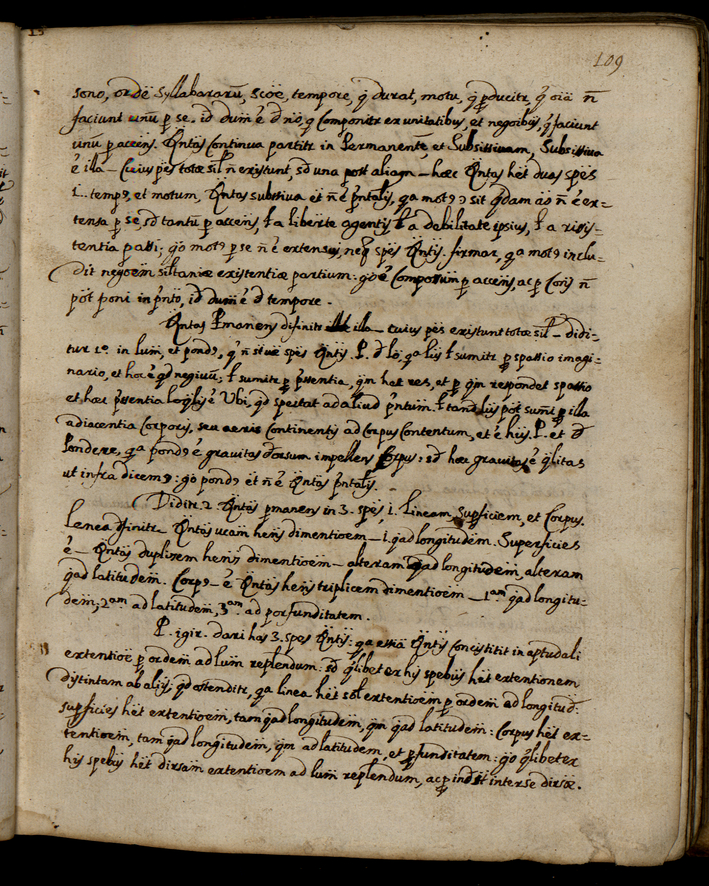 109
sono, ordẽ syllabararũ, scõe, tempore, q̃ durat, motu, q̃ ꝑducitr, q̃ oĩa ñ
faciunt unũ ꝑ se. id dum̃ ẽ d̃ nõ, q̃ componitr ex unitatibus, et negoibus, q̃ faciunt
unũ ꝑ accẽs. Qntas Continua partitr in Permanentẽ, et Subsistivam, Subsistiva
ẽ illa – Cuius p̃es totæ sil ñ existunt, sd una post aliaqn – hæc Qntas hẽt duas spẽs
i. temp9, et motum, Qntas subsistiva et ñ ẽ p̃ntalis, qa mot9 sit q̃dam ãõ ñ ẽ ex-
tensa ꝑ se, sd tantũ ꝑ accẽns, ł a libertẽ agentis ł a dabilitate ipsius, ł a risis-
tentia passi; g̃o mot9 ꝑ se ñ ẽ extensus, neq spẽs Qntis. firmar, qa mot9 inclu-
dit negoem̃ siltaniæ existentiæ partium: g̃o ẽ Compositum ꝑ accẽns, ac ꝑ Cõns ñ
põt poni in p̃nto, id dum̃ ẽ d̃ tempore.
Qntas Pmanens difinitr illa – cuius p̃es existunt totæ sil – didi-
tur 1º in lum̃, et pond9, q̃ ñ st̃ uẽ spẽs Qntis. P. d̃ lõ, qa lus ł sumitr ꝑ spatio imagi-
nario, et hoc ẽ qd negiuũ; ł sumitr ꝑ p̃ssentia, q̃m het res, et ꝑ q̃m respondet spatio
et hæc p̃ssentia loqlis ẽ Ubi, qd spectat ad aliud p̃ntum. ł tandẽ lus põt sumi ꝑ illa
adiacentia Corporis, seu aeris Continentis ad Corpus Contentum, et ẽ hus. P. et d̃
Pondere, qa pond9 ẽ gravitas dorsum impellens Corpus: sd hæc gravitas ẽ qlitas
ut infra dicem9: g̃o pond9 et ñ ẽ Qntas p̃ntalis.
Diditr 2 Qntas pmanens in 3. spẽs, i. Lineam, supficiem, et Corpus.
Lenea difinitr Qntas unam hens dimentioem – i. qad longitudem̃. Superficies
ẽ – Qntas duplicem hens dimentioem – alteram qad longitudem̃, alteram
qad latitudem̃. Corp9 – ẽ Qntas hens triplicem dimentioem – 1am qad longitu-
dem̃, 2am ad latitudem̃, 3am ad porfunditatem.
P. igir. dari has 3. spẽs Qntis: qa essia Qntis Concistitit in aptudali
extentioẽ ꝑ ordem̃ ad lum̃ replendum: sd qlibet ex his spebus hẽt extentionem
distintam ab aliis: qd ostenditr, qa linea hẽt sol extentioem̃ ꝑ ordem̃ ad longitud:
supficies hẽt extentioem̃, tam qad longitudem̃, q̃m qad latitudem̃: Corpus hẽt ex-
tentioem̃, tam qad longitudem̃, q̃m ad latitudem̃, et ꝑfunditatem: g̃o qlibet ex
his spebus hẽt dirsam extentioem ad lum̃ replendum, ac ꝑ inde st̃ inter se dirsæ.